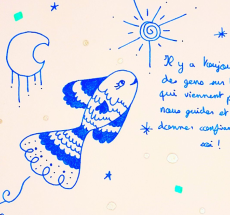 Il y a toujours
des gens sur
qui viennent p
nous guider et
donner confian
soi !